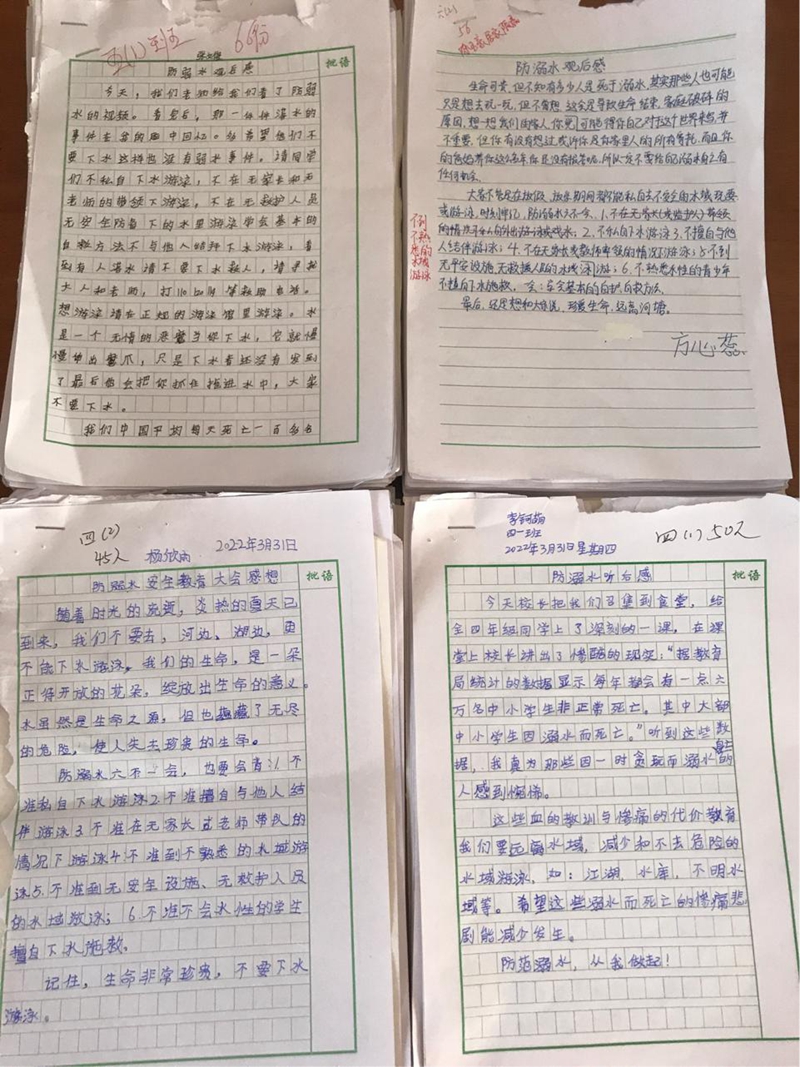 五(1)班
66份
防溺水观后感
批语
今天,我们去她给我们看了防弱
水的视频。看完后,那一件件溺水的
事件在我的脑中回忆。我希望他们不
要下水这样也没有弱水事件。请同学
们不私自下水游泳,不在无家长和无
老师的带领下游泳,不在无救护人员
无安全防备下的水里游泳学会基本的
自救方法不与他人结拜下水游泳,看
到有人溺水请不要下水救人,请寻找
大人和老师,打110时等救助电话。
想游泳请在正规的游泳馆里游泳。水
是一个无情的恶魔当你下水,它就慢
慢伸出魔爪,只是下水者还没有察到
了最后他会把你抓住拖进水中,大家
不要下水。
我们中国平均每天死亡一百多名
六(2)
58
防溺水观后感
生命可贵,但不知有多少人是死于溺水,其实那些人也可能
只是想去玩一玩,但不曾想,这会是导致生命结束,家庭破碎的
原因,想一想我们
可能得你自己对于这个世界来说并
不重要,但你有没有想过或许你是你家里人的所有寄托,而且你
的爸妈养你这么多年你还没有报答呢,所以一次不要给自己溺水自己有
任何机会。
大家不管是在放假、放学期间都不能私自去不安全的水域玩耍
或游泳,时刻牢记,防溺水六不一会:1.不在无家长(或监护人)带领
的情况下私自外出游泳或戏水;2.不私自下水游泳3.不擅自与他
人结伴游泳;4.不在无家长或教师带领的情况下游泳;5.不到
无安全设施、无救援人员的水域游泳;6.不熟悉水性的青少年
不擅自下水施救,一会:学会基本的自护自救方法。
最后,还是想和大家说,珍爱生命,远离河塘。
不到
不熟
悉的
水域
游泳
方心蕊
四(2)
45人
杨欣雨
2022年3月31日
防溺水安全教育大会感想
批语
随着时光的流逝,炎热的夏天已
到来,我们不要去,河边、湖边,更
不能下水游泳。我们的生命,是一朵
正得开放的花朵,绽放出生命的意义。
水虽然是生命之源,但也蕴藏了无尽
的危险,使人失去珍贵的生命。
防溺水六不一会,也要会背:1.不
准私自下水游泳2.不准擅自与他人结
伴游泳3.不准在无家长或老师带队的
情况下游泳4.不准到不熟悉的水域游
泳5.不准到无安全设施、无救护人员
的水域游泳;6.不准不会水性的学生
擅自下水施救。
记住,生命非常珍贵,不要下水
游泳。
四一班
2022年3月31日星期四
四(1)50人
防溺水听后感
批语
今天校长把我们召集到食堂,给
全四年级同学上了深刻的一课,在课
堂上校长讲出了惨酷的现实:“据教育
局统计的数据显示每年都会有一点六
万名中小学生非正常死亡。其中大部
中小学生因溺水而死亡。”听到这些数
据,我真为那些因一时贪玩而溺水的
人感到惋惜。
这些血的教训与惨痛的代价教育
我们要远离水域,减少和不去危险的
水域游泳,如:江湖,水库,不明水
域等。希望这些溺水而死亡的惨痛悲
剧能减少发生。
防范溺水,从我做起!